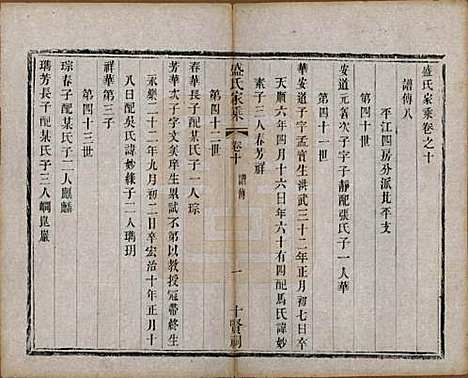 盛氏家乘卷之十
譜傳八
平江四房分派北平支
第四十世
安道元善次子字子靜配張氏子一人華
第四十一世
華安道子字孟實生洪武三十二年正月初七日卒
天順六年四月十六日年六十有四配馬氏諱妙
素子三人春芳祥
盛氏家乘
卷十
譜傳
一
十賢祠
第四十二世
春華長子配某氏子一人琮
芳華次子字文奂庠生累試不第以教授冠帶終生
永樂二十二年九月初二日卒宏治十年正月十
八日配吳氏諱妙緣子二人瑀玥
祥華第三子
第四十三世
琮春子配某氏子二人麒麟
瑀芳長子配某氏子三人嵎崑巖